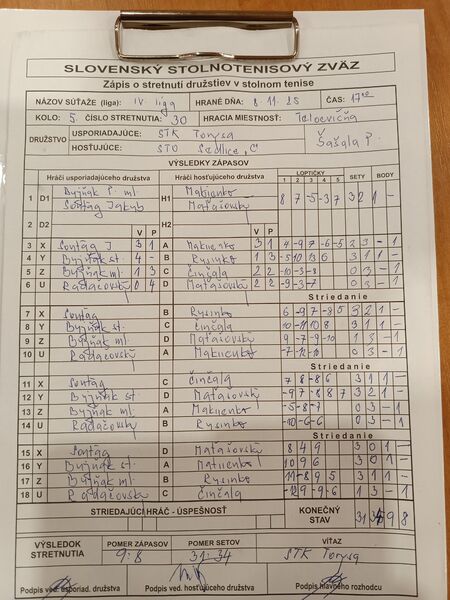 SLOVENSKÝ STOLNOTENISOVÝ ZVÄZ
Zápis o stretnutí družstiev v stolnom tenise
NÁZOV SÚŤAŽE (liga): IV liga HRANÉ DŇA: 8 11. 25 ČAS: 17
KOLO: 5. ČÍSLO STRETNUTIA: 30 HRACIA MIESTNOSŤ: Telocvičňa
DRUŽSTVO USPORIADAJÚCE: STK Torysa Šašala P.
HOSŤUJÚCE: STO Sedlice "C"
VÝSLEDKY ZÁPASOV
Hráči usporiadajúceho družstva Hráči hosťujúceho družstva LOPTIČKY SETY BODY
1 2 3 4 5
1 D1 Byjňak P. ml H1 Makienko 8 7 -5 -3 7 3 2 1 -
Sontág Jakub Matašovský
2 D2 H2
V P V P
3 X Sontág J 3 1 A Makienko 3 1 4 -9 7 -6 -5 2 3 - 1
4 Y Byjňak st. 4 - B Rysinko 1 3 -5 10 13 6 3 1 1 -
5 Z Byjňak ml 1 3 C Činčala 2 2 -10 -3 -8 0 3 - 1
6 U Radačovský 0 4 D Matašovský 2 2 -9 -3 -7 0 3 - 1
Striedanie
7 X Sontág B Rysinko 6 -9 7 -8 5 3 2 1 -
8 Y Byjňak st. C Činčala 10 -11 10 8 3 1 1 -
9 Z Byjňak ml D Matašovský 9 -7 -9 -10 1 3 - 1
10 U Radačovský A Makienko -7 -12 -10 0 3 - 1
Striedanie
11 X Sontág C Činčala 7 8 -8 6 3 1 1 -
12 Y Byjňak st D Matašovský -9 7 -8 8 7 3 2 1 -
13 Z Byjňak ml. A Makienko -5 -8 -7 0 3 - 1
14 U Radačovský B Rysinko -10 -6 -6 0 3 - 1
Striedanie
15 X Sontág D Matašovský 8 4 9 3 0 1 -
16 Y Byjňak st. A Makienko 10 9 6 3 0 1 -
17 Z Byjňak ml. B Rysinko 11 -8 9 5 3 1 1 -
18 U Radačovský C Činčala -12 9 -9 -6 1 3 - 1
STRIEDAJÚCI HRÁČ - ÚSPEŠNOSŤ KONEČNÝ STAV 31 34 9 8
VÝSLEDOK STRETNUTIA POMER ZÁPASOV POMER SETOV VÍŤAZ
9:8 31:34 STK Torysa
Podpis ved. usporiad. družstva Podpis ved. hosťujúceho družstva Podpis hlavného rozhodcu